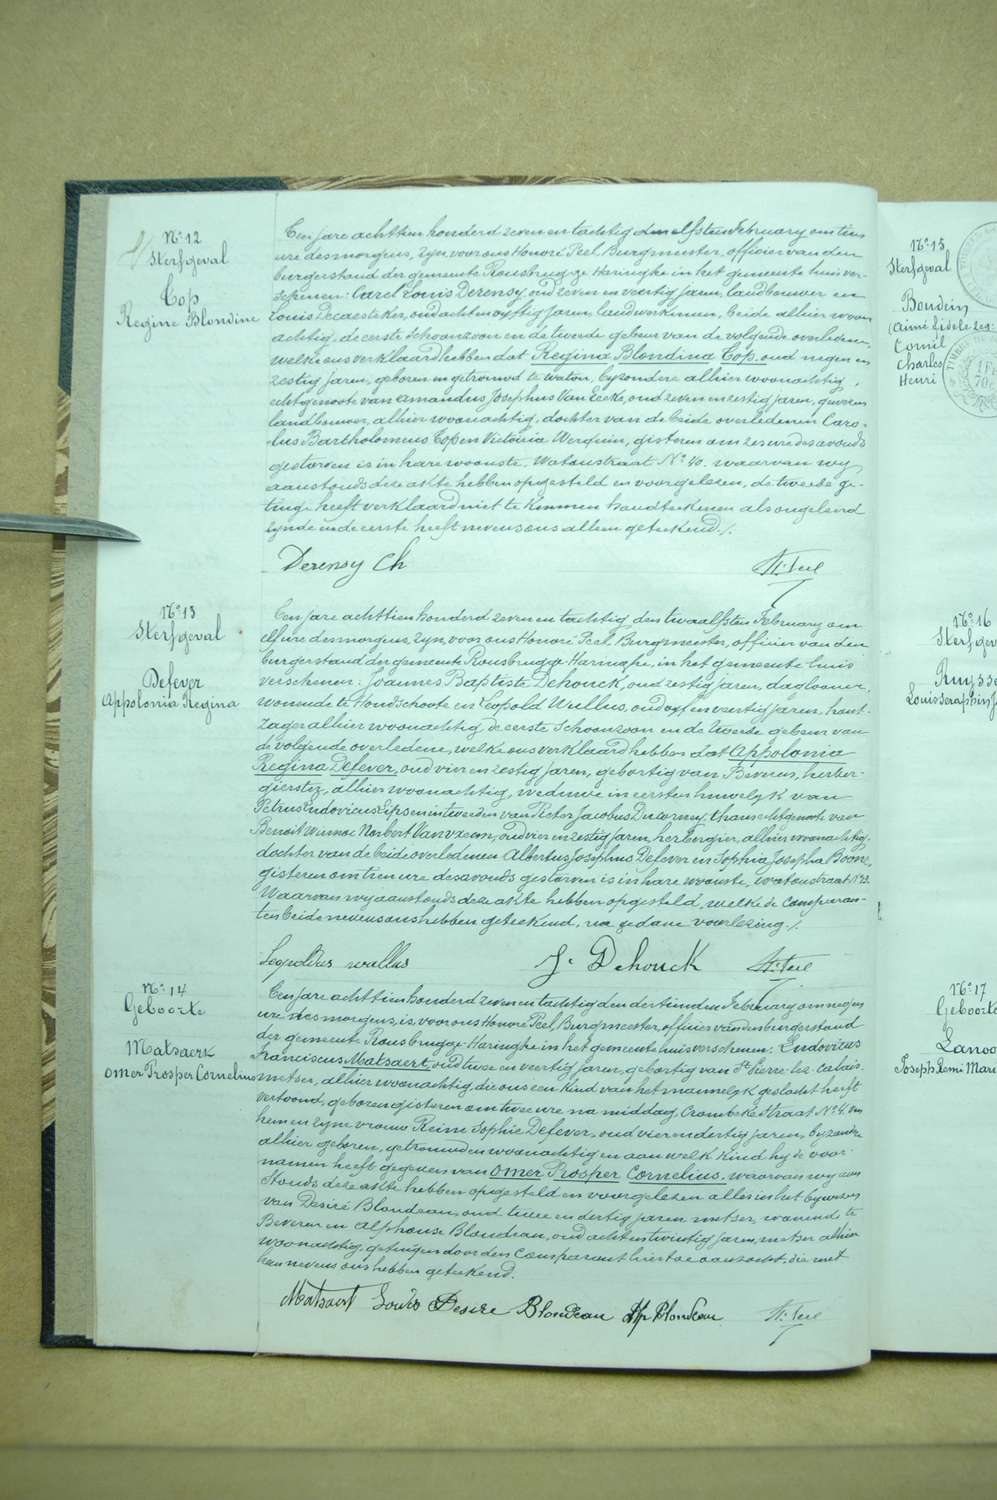 Nº 12
Sterfgeval
Cop
Regine Blondine
Ten jare achttien honderd zeven en tachtig den elfsten February om tien
ure des morgens, zyn, voor ons Honoré Peel Burgmeester, officier van den
burgerstand der gemeente Rousbrugge Haringhe in het gemeente huis ver-
schenen: Carel Louis Derensy, oud zeven en veertig jaren, landbouwer en
Louis Decaesteker, oud acht en vyftig jaren, landwerkman, beide alhier woon
achtig, de eerste schoonzoon en de tweede gebeur van de volgende overledene,
welke ons verklaard hebben dat Regina Blondina Cop, oud negen en
zestig jaren, geboren en getrouwd te Watou, byzondere alhier woonachtig,
echtgenoote van Amandus Josephus Van Eecke, oud zeven en zestig jaren, gewezen
landbouwer, alhier woonachtig, dochter van de beide overledenen Caro-
lus Bartholomeus Cop en Victoria Werquin, gisteren om zes ure des avonds
gestorven is in hare woonste, Watoustraat Nº 40. waarvan wy
aanstonds deze akte hebben opgesteld en voorgelezen, de tweede ge-
tuige heeft verklaard niet te kunnen handteekenen als ongeleerd
zynde en de eerste heeft nevens ons alleen geteekend./.
Derensy Ch
H. Peel
Nº 13
Sterfgeval
Defever
Appolonia Regina
Ten jare achttien honderd zeven en tachtig den twaalfsten February om
elf ure des morgens, zyn, voor ons Honoré Peel Burgmeester, officier van den
burgerstand der gemeente Rousbrugge Haringhe, in het gemeente huis
verschenen: Joannes Baptiste Dehouck, oud zestig jaren, daglooner,
wonende te Hondschoote en Leopold Wullus, oud vyf en veertig jaren, hout-
zager alhier woonachtig, de eerste schoonzoon en de tweede gebeur van
de volgende overledene, welke ons verklaard hebben dat Appolonia
Regina Defever, oud vier en zestig jaren, geboortig van Beveren, herber-
gierster, alhier woonachtig, weduwe in eersten huwelyk van
Petrus Ludovicus Lips en in tweeden van Pieter Jacobus Ducorney, thans echtgenoote van
Benoit Winnoc Norbert Vanvaeren, oud vier en zestig jaren, herbergier, alhier woonachtig,
dochter van de beide overledenen Albertus Josephus Defever en Sophia Josepha Boone,
gisteren om tien ure des avonds gestorven is in hare woonste, watoustraat Nº 23.
Waarvan wy aanstonds deze akte hebben opgesteld, welke de comparan-
ten beide nevens ons hebben geteekend, na gedane voorlezing./.
Leopoldus wullus
J. Dehouck
H. Peel
Nº 14
Geboorte
Matsaert
Omer Prosper Cornelius
Ten jare achttien honderd zeven en tachtig den dertienden February om negen
ure des morgens, is, voor ons Honoré Peel Burgmeester, officier van den burgerstand
der gemeente Rousbrugge-Haringhe in het gemeente huis verschenen: Ludovicus
Franciscus Matsaert, oud twee en veertig jaren, gebortig van St Pierre-lez-Calais
metser, alhier woonachtig, die ons een kind van het mannelyk geslacht heeft
vertoond, geboren gisteren om twee ure na middag, Crombeke straat Nº 4. van
hem en zyne vrouw Reine Sophie Defever, oud vier en dertig jaren, byzondere
alhier geboren, getrouwd en woonachtig en aan welk kind hy de voor-
namen heeft gegeven van Omer Prosper Cornelius, waarvan wy aan
stonds deze akte hebben opgesteld en voorgelezen alles in het bywezen
van Desiré Blondeau, oud twee en dertig jaren metser, wonende te
Beveren en Alphonse Blondeau, oud acht en twintig jaren, metser alhier
woonachtig, getuigen door den Comparant hiertoe aanzocht, die met
hem nevens ons hebben geteekend.
Matsaert Louis Desire Blondeau Alp Blondeau
H. Peel
Nº 15
Sterfgeval
Boudein
Cornil
Charles
Henri
Nº 16
Sterfgev
Ruysse
Nº 17
Geboorte
Lanoo
Joseph Remi Mari